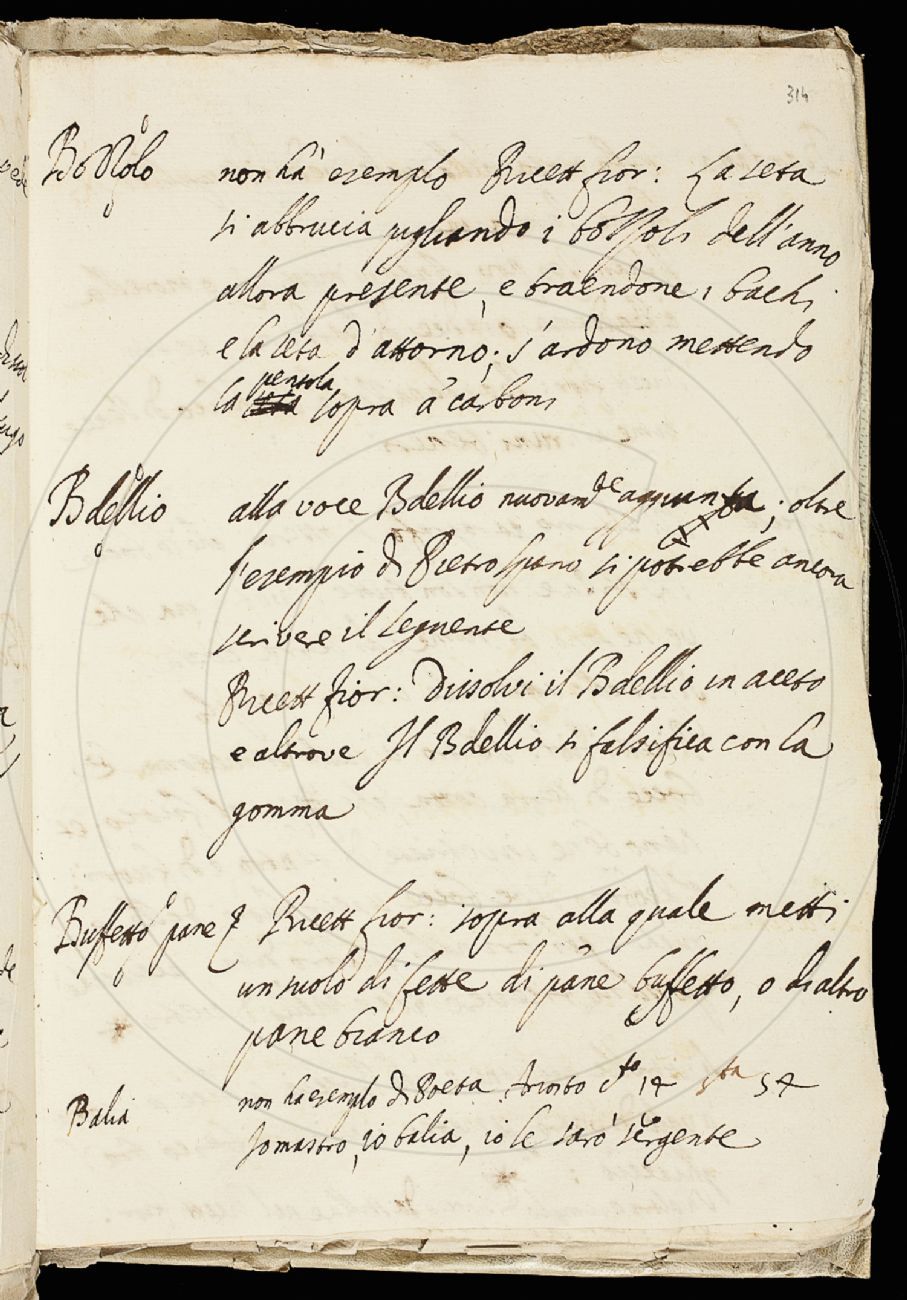 314
Bozzolo non hà esemplo Ricett fior: La seta
si abbrucia pigliando i bozzoli dell'anno
allora presente, e traendone i bachi
e la seta d'attorno; s'ardono mettendo
la pentola sopra a carboni
Bdellio alla voce Bdellio nuovamte aggiunta; oltre
l'esempio di Pietro Spano si potrebbe ancora
scrivere il seguente
Ricett fior: Dissolvi il Bdellio in aceto
e altrove Il Bdellio si falsifica con la
gomma
Buffetto pane Ricett fior: sopra alla quale metti
un suolo di fette di pane buffetto, o di altro
pane bianco
Balia non ha esemplo di Poeta Ariosto Cto 14 sta 54
Io mastro, io balia, io le sarò sergente